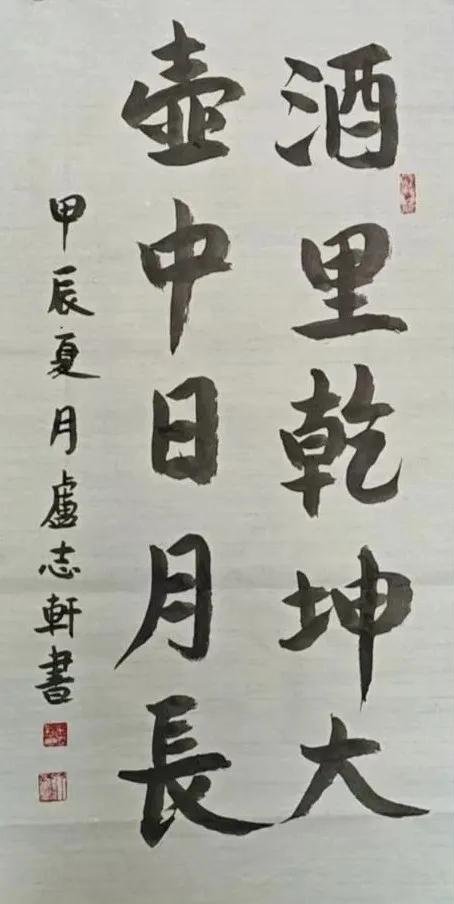 酒里乾坤大
壺中日月長
甲辰夏月盧志軒書